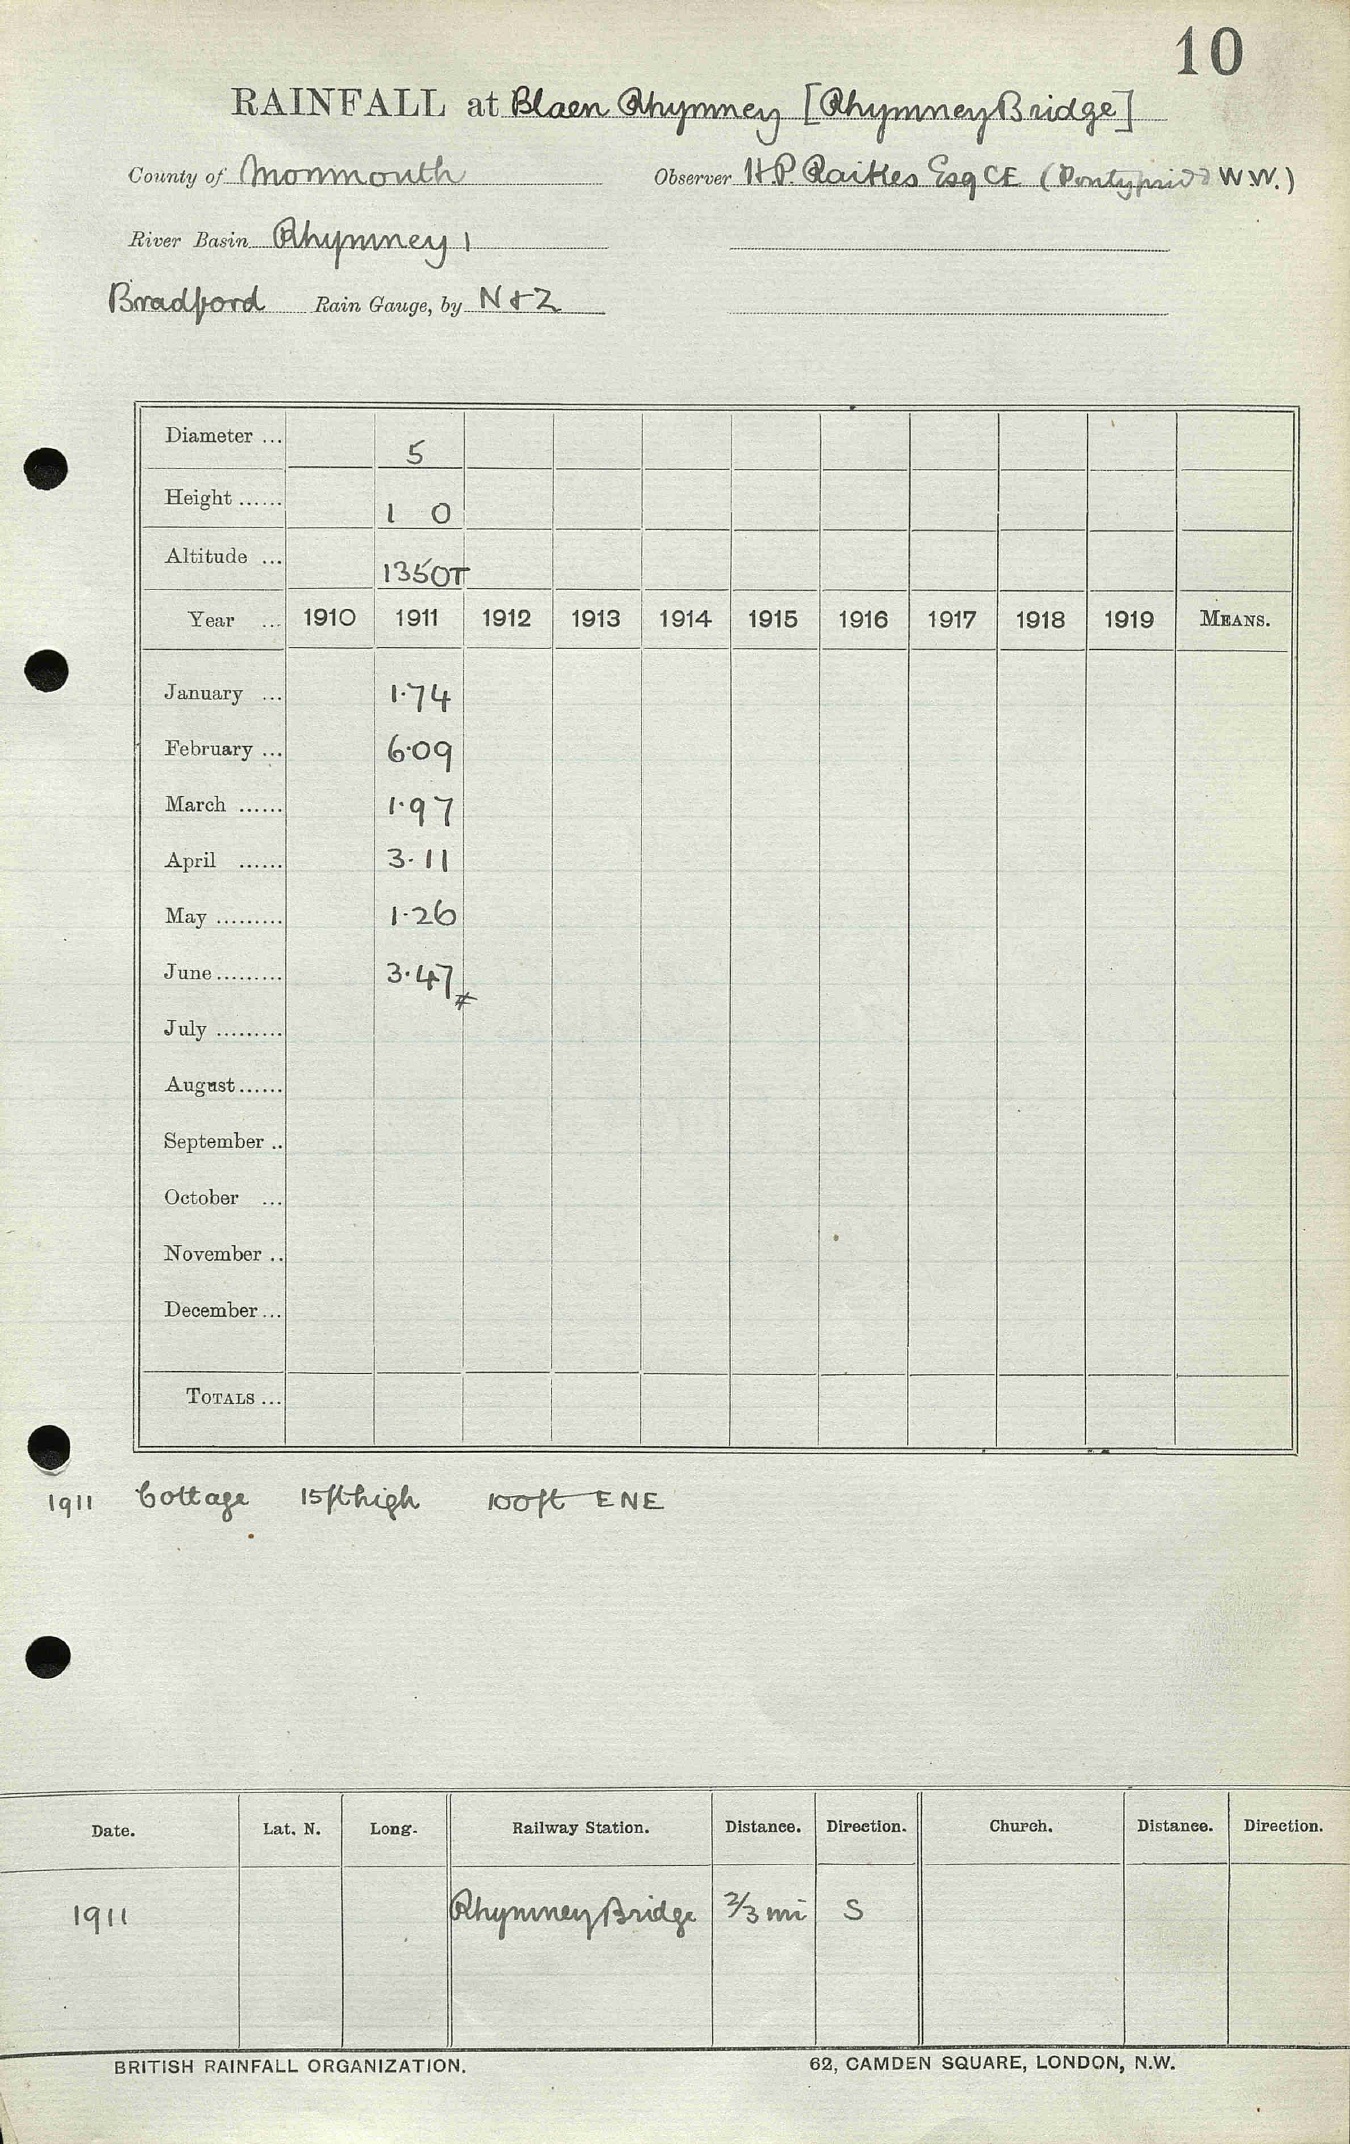 10
RAINFALL at Blaen Rhymney [Rhymney Bridge]
County of Monmouth Observer H.P. Raikes Esq CE (Pontypridd W.W.)
River Basin Rhymney 1
Bradford Rain Gauge, by N & Z
Diameter ... 5
Height ...... 1 0
Altitude ... 1350T
Year ... 1910 1911 1912 1913 1914 1915 1916 1917 1918 1919 MEANS.
January ... 1.74
February ... 6.09
March ...... 1.97
April ...... 3.11
May ......... 1.26
June ......... 3.47 #
July .........
August ......
September ..
October ...
November ..
December ...
TOTALS ...
1911 Cottage 15ft high 100ft ENE
Date. Lat. N. Long. Railway Station. Distance. Direction. Church. Distance. Direction.
1911 Rhymney Bridge 2/3 mi S
BRITISH RAINFALL ORGANIZATION. 62, CAMDEN SQUARE, LONDON, N.W.